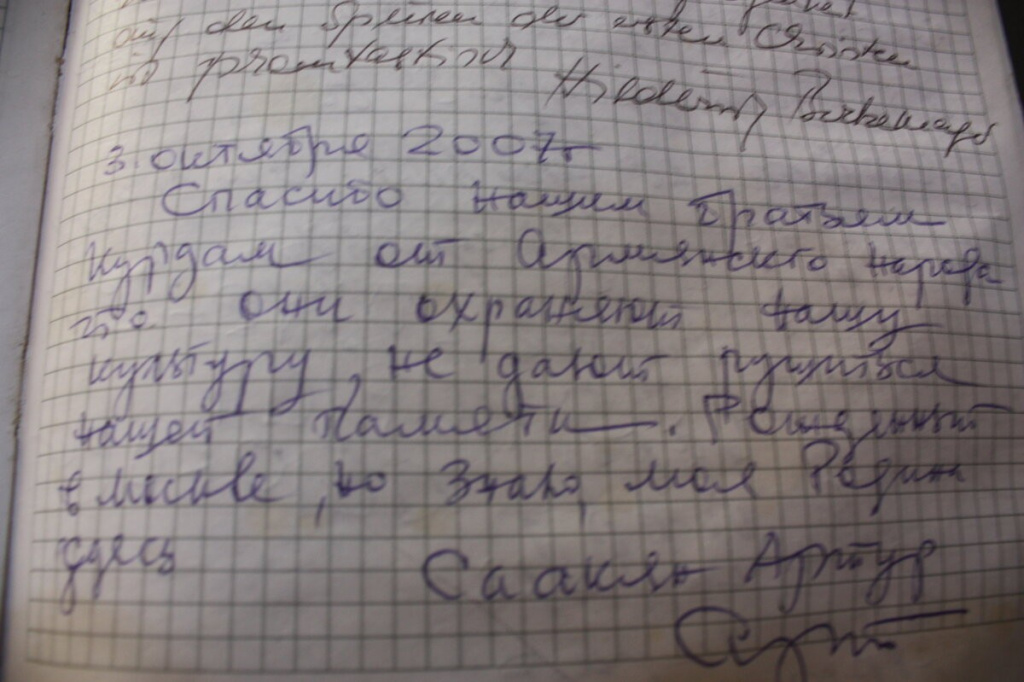 auf den Spuren der ersten Christen
3. октября 2007г
Спасибо нашим братьям
курдам от Армянского народа
что они охраняют нашу
культуру, не дают рушиться
нашей памяти. Рожденный
в Москве, но знаю, моя Родина
здесь
Саакян Артур